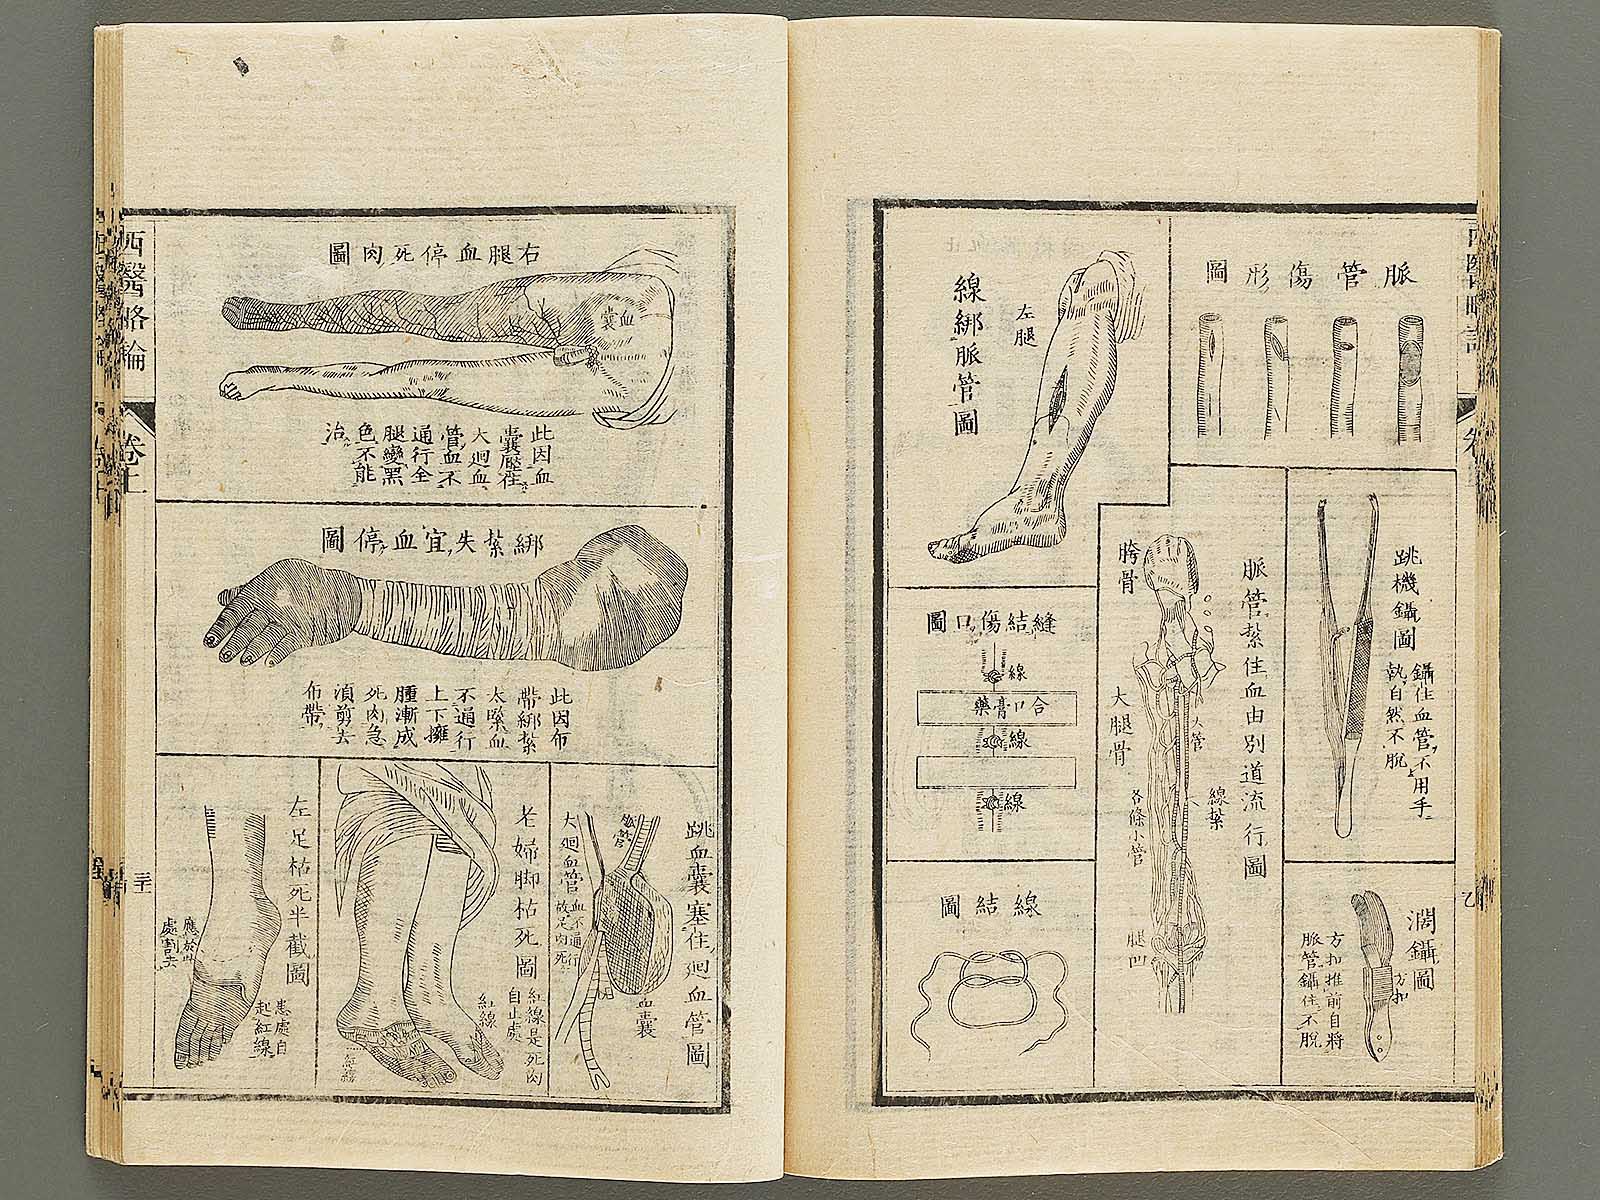 脈管傷形圖
跳機鑷圖
鑷住血管,不用手
執,自然不脫
濶鑷圖
方扣
方扣推前自將
脈管鑷住,不脫
脈管紮住血由別道流行圖
胯骨
大管
大腿骨
線紮
各條小管
腿凹
線綁脈管圖
左腿
縫結傷口圖
線
合口膏藥
線
線
線結圖
西醫略論
卷上
右腿血停死肉圖
血囊
此因血
囊壓住
大廻血
管,血不
通行,全
腿變黑
色,不能
治
綁紮失宜血停圖
此因布
帶綁紮
太緊,血
不通行
上下擁
腫,漸成
死肉,急
須剪去
布帶
跳血囊塞住廻血管圖
脈管
大廻血管
血不通行
故足肉死
血囊
老婦脚枯死圖
紅線是死肉
自止處
紅線
紅線
左足枯死半截圖
患處自
起紅線
應於此
處割去